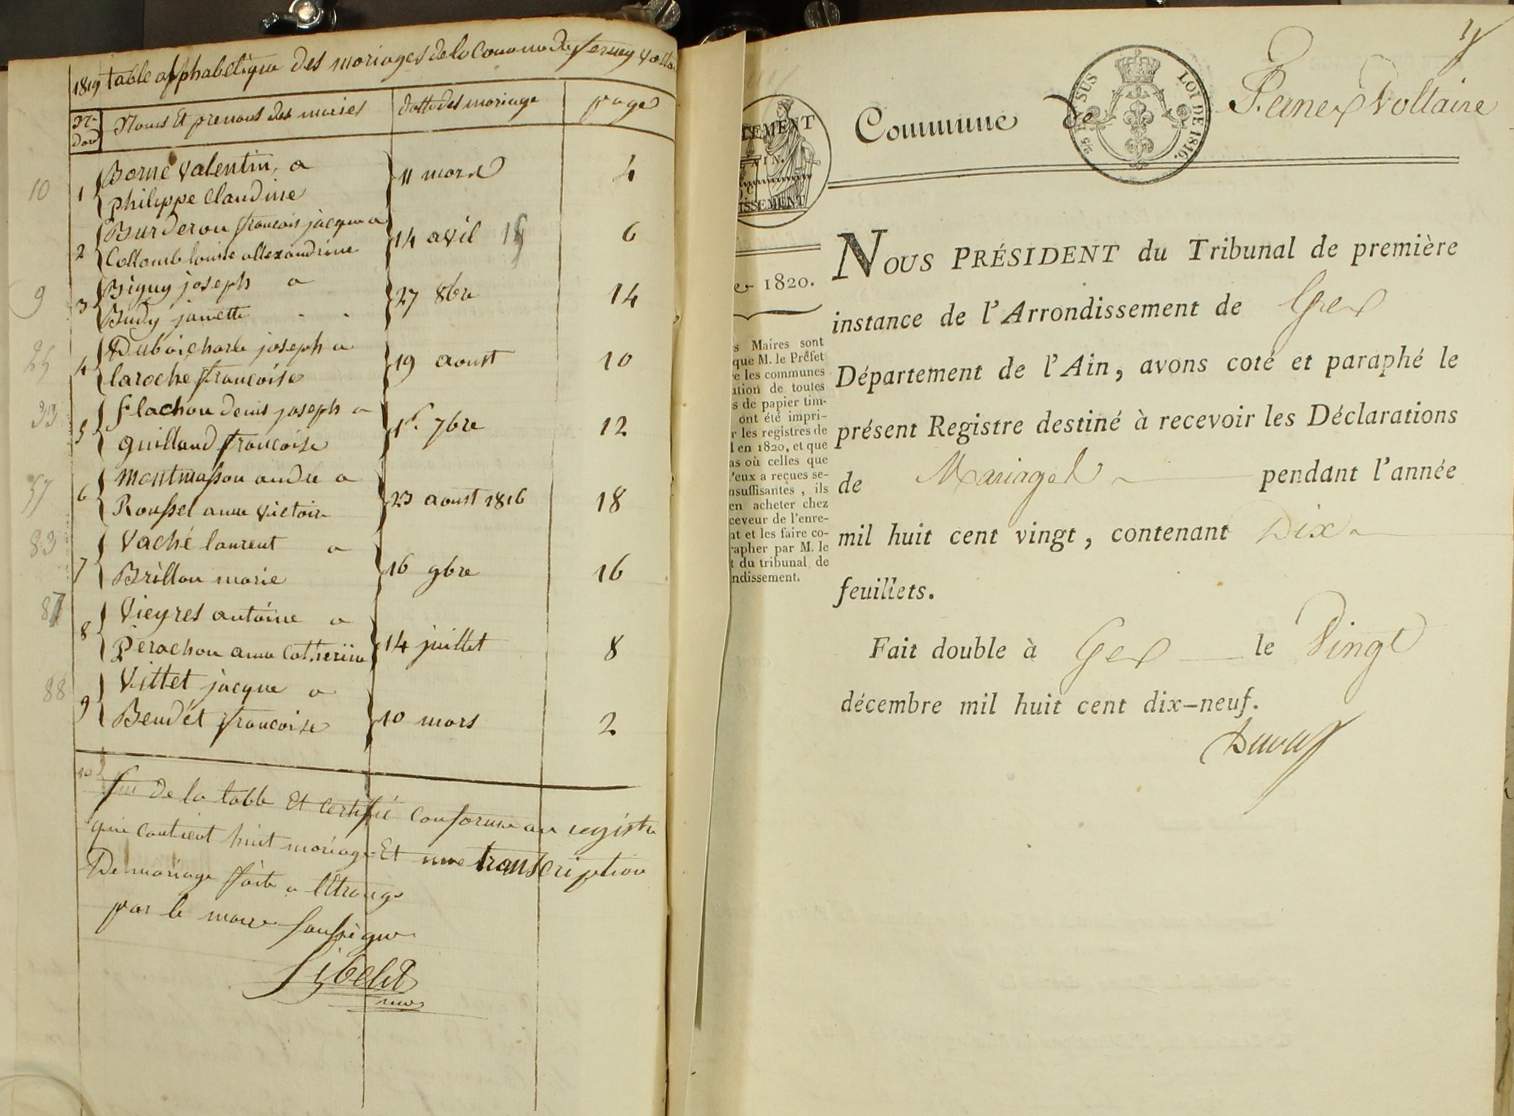 1819 table alphabétique des mariages de la Commune de ferney Volta
No. Dord
Noms Et prenoms des mariés
datte des mariage
page
10
1
Borne Valentin, a
philippe Claudine
11 mars
4
2
Burderou francois jacque a
Collomb louise allexandrine
14 avil 19
6
9
3
Biguy joseph a
Budy janette
27 8bre
14
25
4
Dubois charle joseph a
laroche francoise
19 aoust
10
33
5
flachou denis joseph a
guilland francoise
1er. 7bre
12
57
6
Montmasson andré a
Roussel anne Victoire
23 aoust 1816
18
83
7
Vaché laurent a
Brillou marie
16 9bre
16
87
8
Vieyres antoine a
perachou anne Catherine
14 juillet
8
88
9
Vittet jacque a
Beudet francoise
10 mars
2
fin de la table Et certifié conforme au registre
qui contient huit mariage Et une transcription
De mariage faite a l'Etrange
par le maire soussigne
maire
1
Commune de Ferney Voltaire
25 C. SUS
LOI DE 1816.
TEMENT
AIN.
ISSEMENT
NOUS PRÉSIDENT du Tribunal de première
instance de l'Arrondissement de Gex
Département de l'Ain, avons coté et paraphé le
présent Registre destiné à recevoir les Déclarations
de Mariages pendant l'année
mil huit cent vingt, contenant Dix
feuillets.
Fait double à Gex le Vingt
décembre mil huit cent dix-neuf.
Duval
e 1820.
s Maires sont
que M. le Préfet
e les communes
ation de toutes
s de papier tim-
ont été impri-
r les registres de
l en 1820, et que
as où celles que
'eux a reçues se-
nsuffisantes, ils
en acheter chez
ceveur de l'enre-
nt et les faire co-
rapher par M. le
t du tribunal de
ndissement.